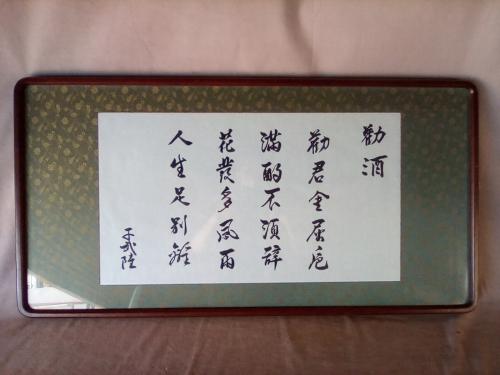 勧酒
勧君金屈卮
満酌不須辞
花發多風雨
人生足別離